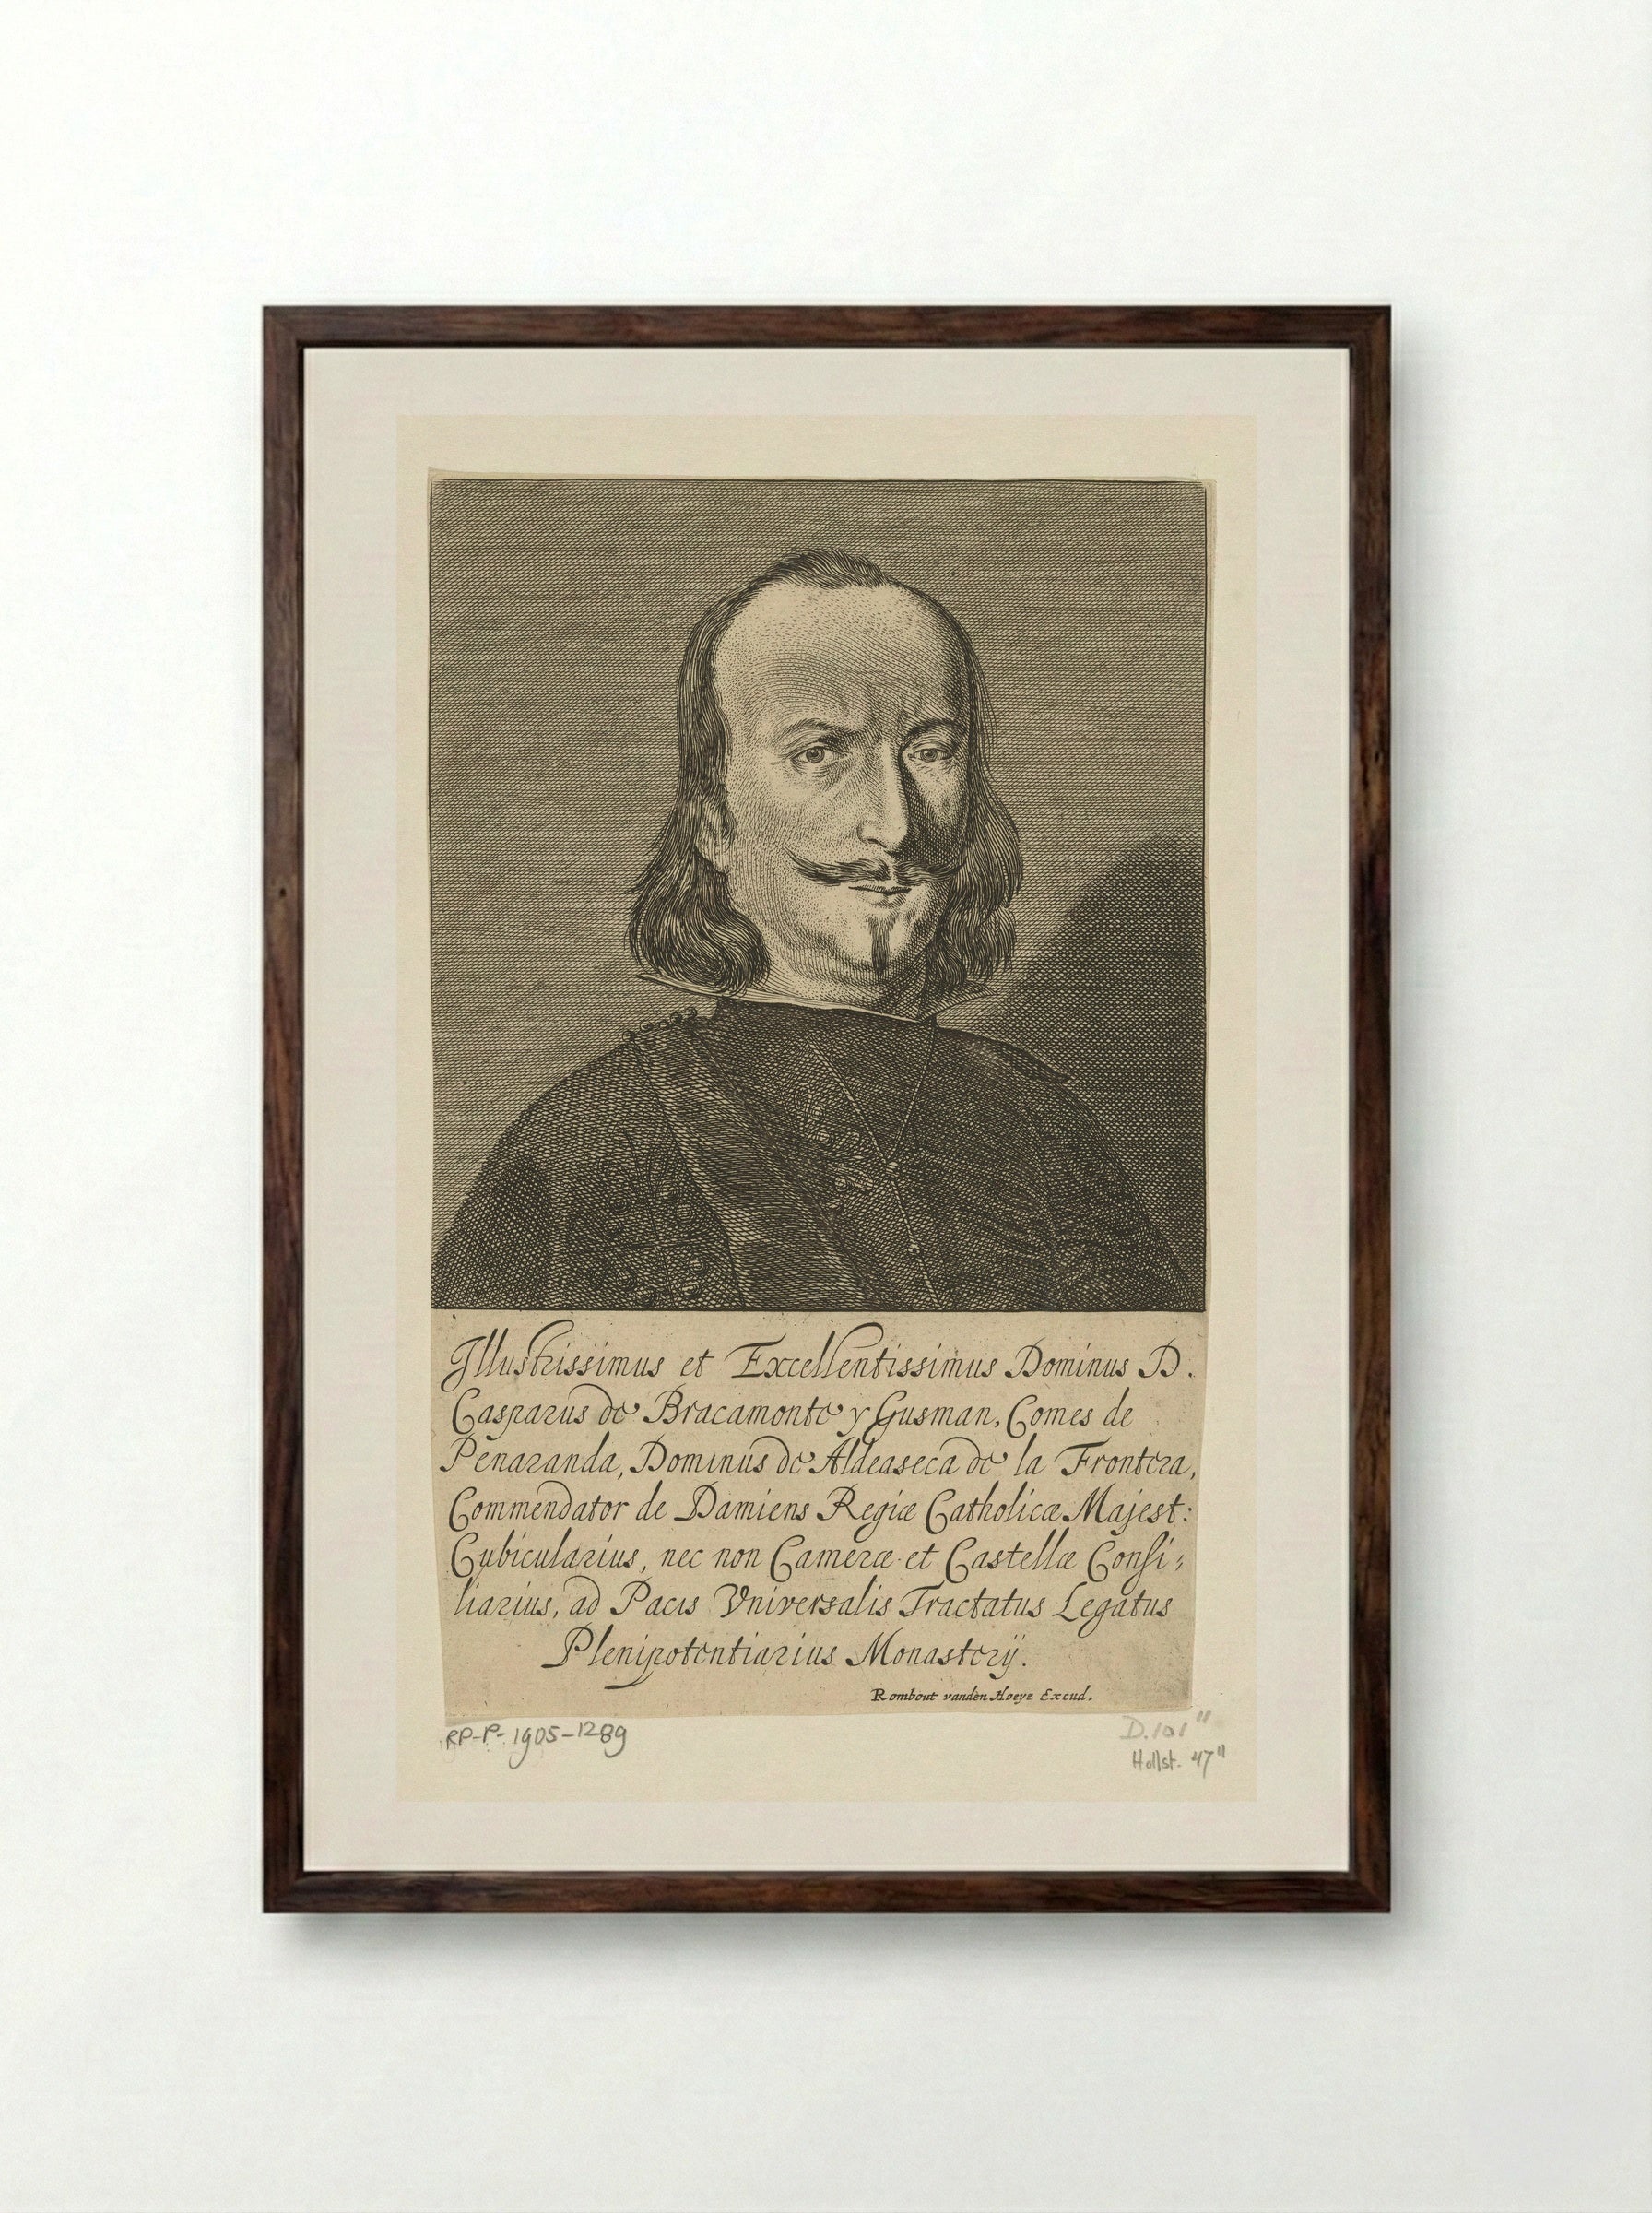 Illustrissimus et Excellentissimus Dominus D.
Casparus de Bracamonte y Gusman, Comes de
Penaranda, Dominus de Aldeaseca de la Frontera,
Commendator de Damiens Regiæ Catholicæ Majest:
Cubicularius, nec non Cameræ et Castellæ Consi⸗
liarius, ad Pacis Vniversalis Tractatus Legatus
Plenipotentiarius Monasterÿ.
Rombout vanden Hoeye Excud.
RP-P-1905-1289
D.101"
Hollst. 47"